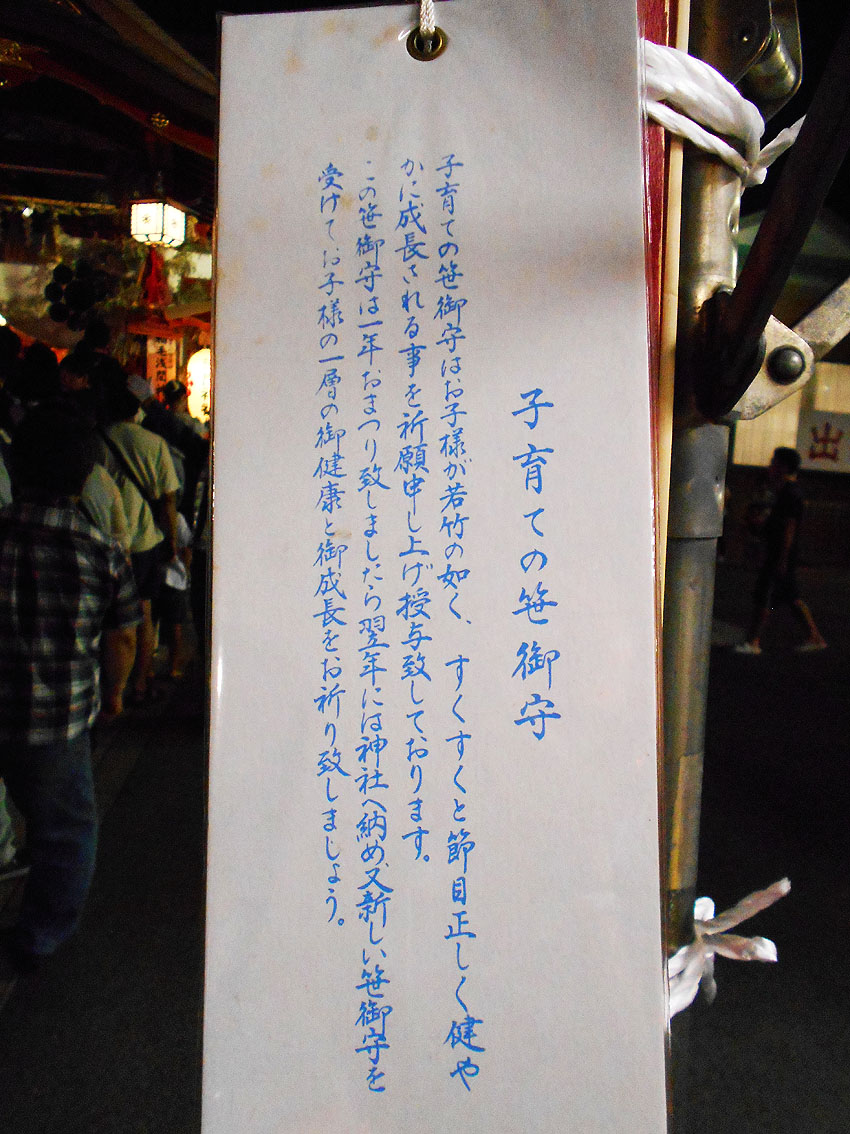 子育ての笹御守
子育ての笹御守はお子様が若竹の如く、すくすくと節目正しく健や
かに成長される事を祈願申し上げ授与致しております。
この笹御守は一年おまつり致しましたら翌年には神社へ納め、又新しい笹御守を
受けてお子様の一層の御健康と御成長をお祈り致しましょう。
出
稲毛浅間